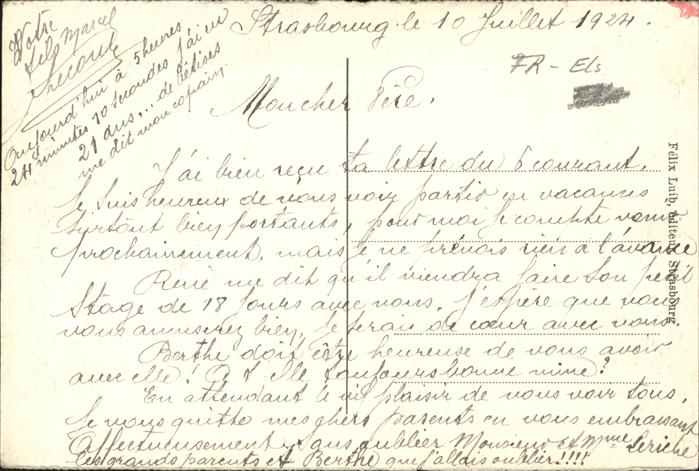 Strasbourg le 10 Juillet 1924.
FR - Els
Mon cher Père,
J'ai bien reçu ta lettre du 6 courant.
Je suis heureux de vous voir partir en vacances
surtout bien portants, pour moi je compte venir
prochainement, mais je ne prévois rien à l'avance
René me dit qu'il viendra faire son petit
stage de 18 jours avec vous. J'espère que vous
vous amuserez bien, je serai de cœur avec vous
Berthe doit être heureuse de vous avoir
avec elle! A t elle toujours bonne mine?
En attendant le plaisir de vous voir tous,
Je vous quitte mes chers parents en vous embrassant
affectueusement sans oublier Monsieur et Mme
les grands parents et Berthe que j'allais oublier!!!!
Votre
fils Marcel
Aujourd'hui à 5 heures
24 minutes 10 secondes j'ai eu
21 ans... de bêtises
me dit mon copain.
Félix Luib, éditeur, Strasbourg